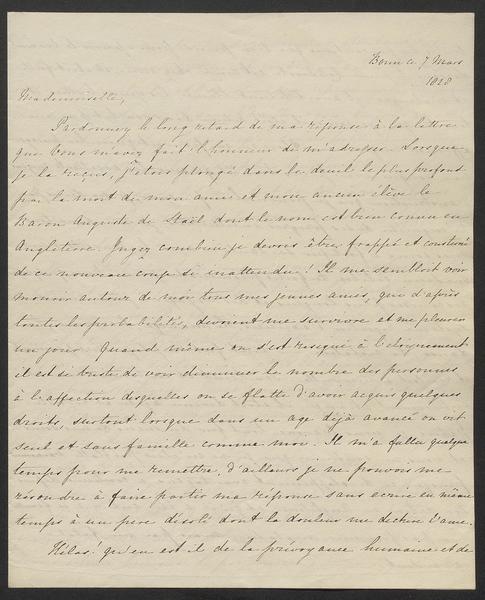 Bonn ce 7 Mars
1828
Mademoiselle,
Pardonnez le long retard de ma réponse à la lettre
que vous m'avez fait l'honneur de m'adresser. Lorsque
je la reçus, j'étois plongé dans le deuil le plus profond
par la mort de mon ami et mon ancien élève le
Baron Auguste de Staël dont le nom est bien connu en
Angleterre. Jugez combien je devois être frappé et consterné
de ce nouveau coup si inattendu! Il me sembloit voir
mourir autour de moi tous mes jeunes amis, qui d'après
toutes les probabilités, devoient me survivre et me pleurer
un jour. Quand même on s'est résigné à l'éloignement
il est si triste de voir diminuer le nombre des personnes
à l'affection desquelles on se flatte d'avoir acquis quelques
droits, surtout lorsque dans un age déjà avancé on vit
seul et sans famille comme moi. Il m'a fallu quelque
temps pour me remettre, d'ailleurs je ne pouvois me
résoudre à faire partir ma réponse sans ecrire en même
temps à un pere désolé dont la douleur me dechire l'ame.
Hélas! qu'en est il de la prévoyance humaine et de